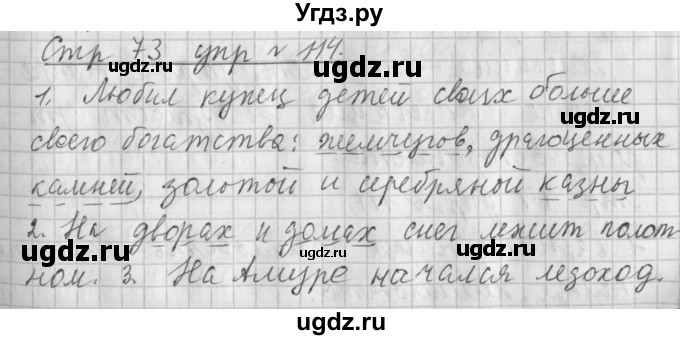 Угдз.ру
Стр 73 упр № 114.
1. Любил купец детей своих больше
своего богатства: жемчугов, драгоценных
камней, золотой и серебряной казны
2. На дворах и домах снег лежит полот
ном. 3. На Амуре начался ледоход.
ugdz.ru ugdz.ru
ugdz.ru ugdz.ru
ugdz.ru ugdz.ru
ugdz.ru ugdz.ru
ugdz.ru